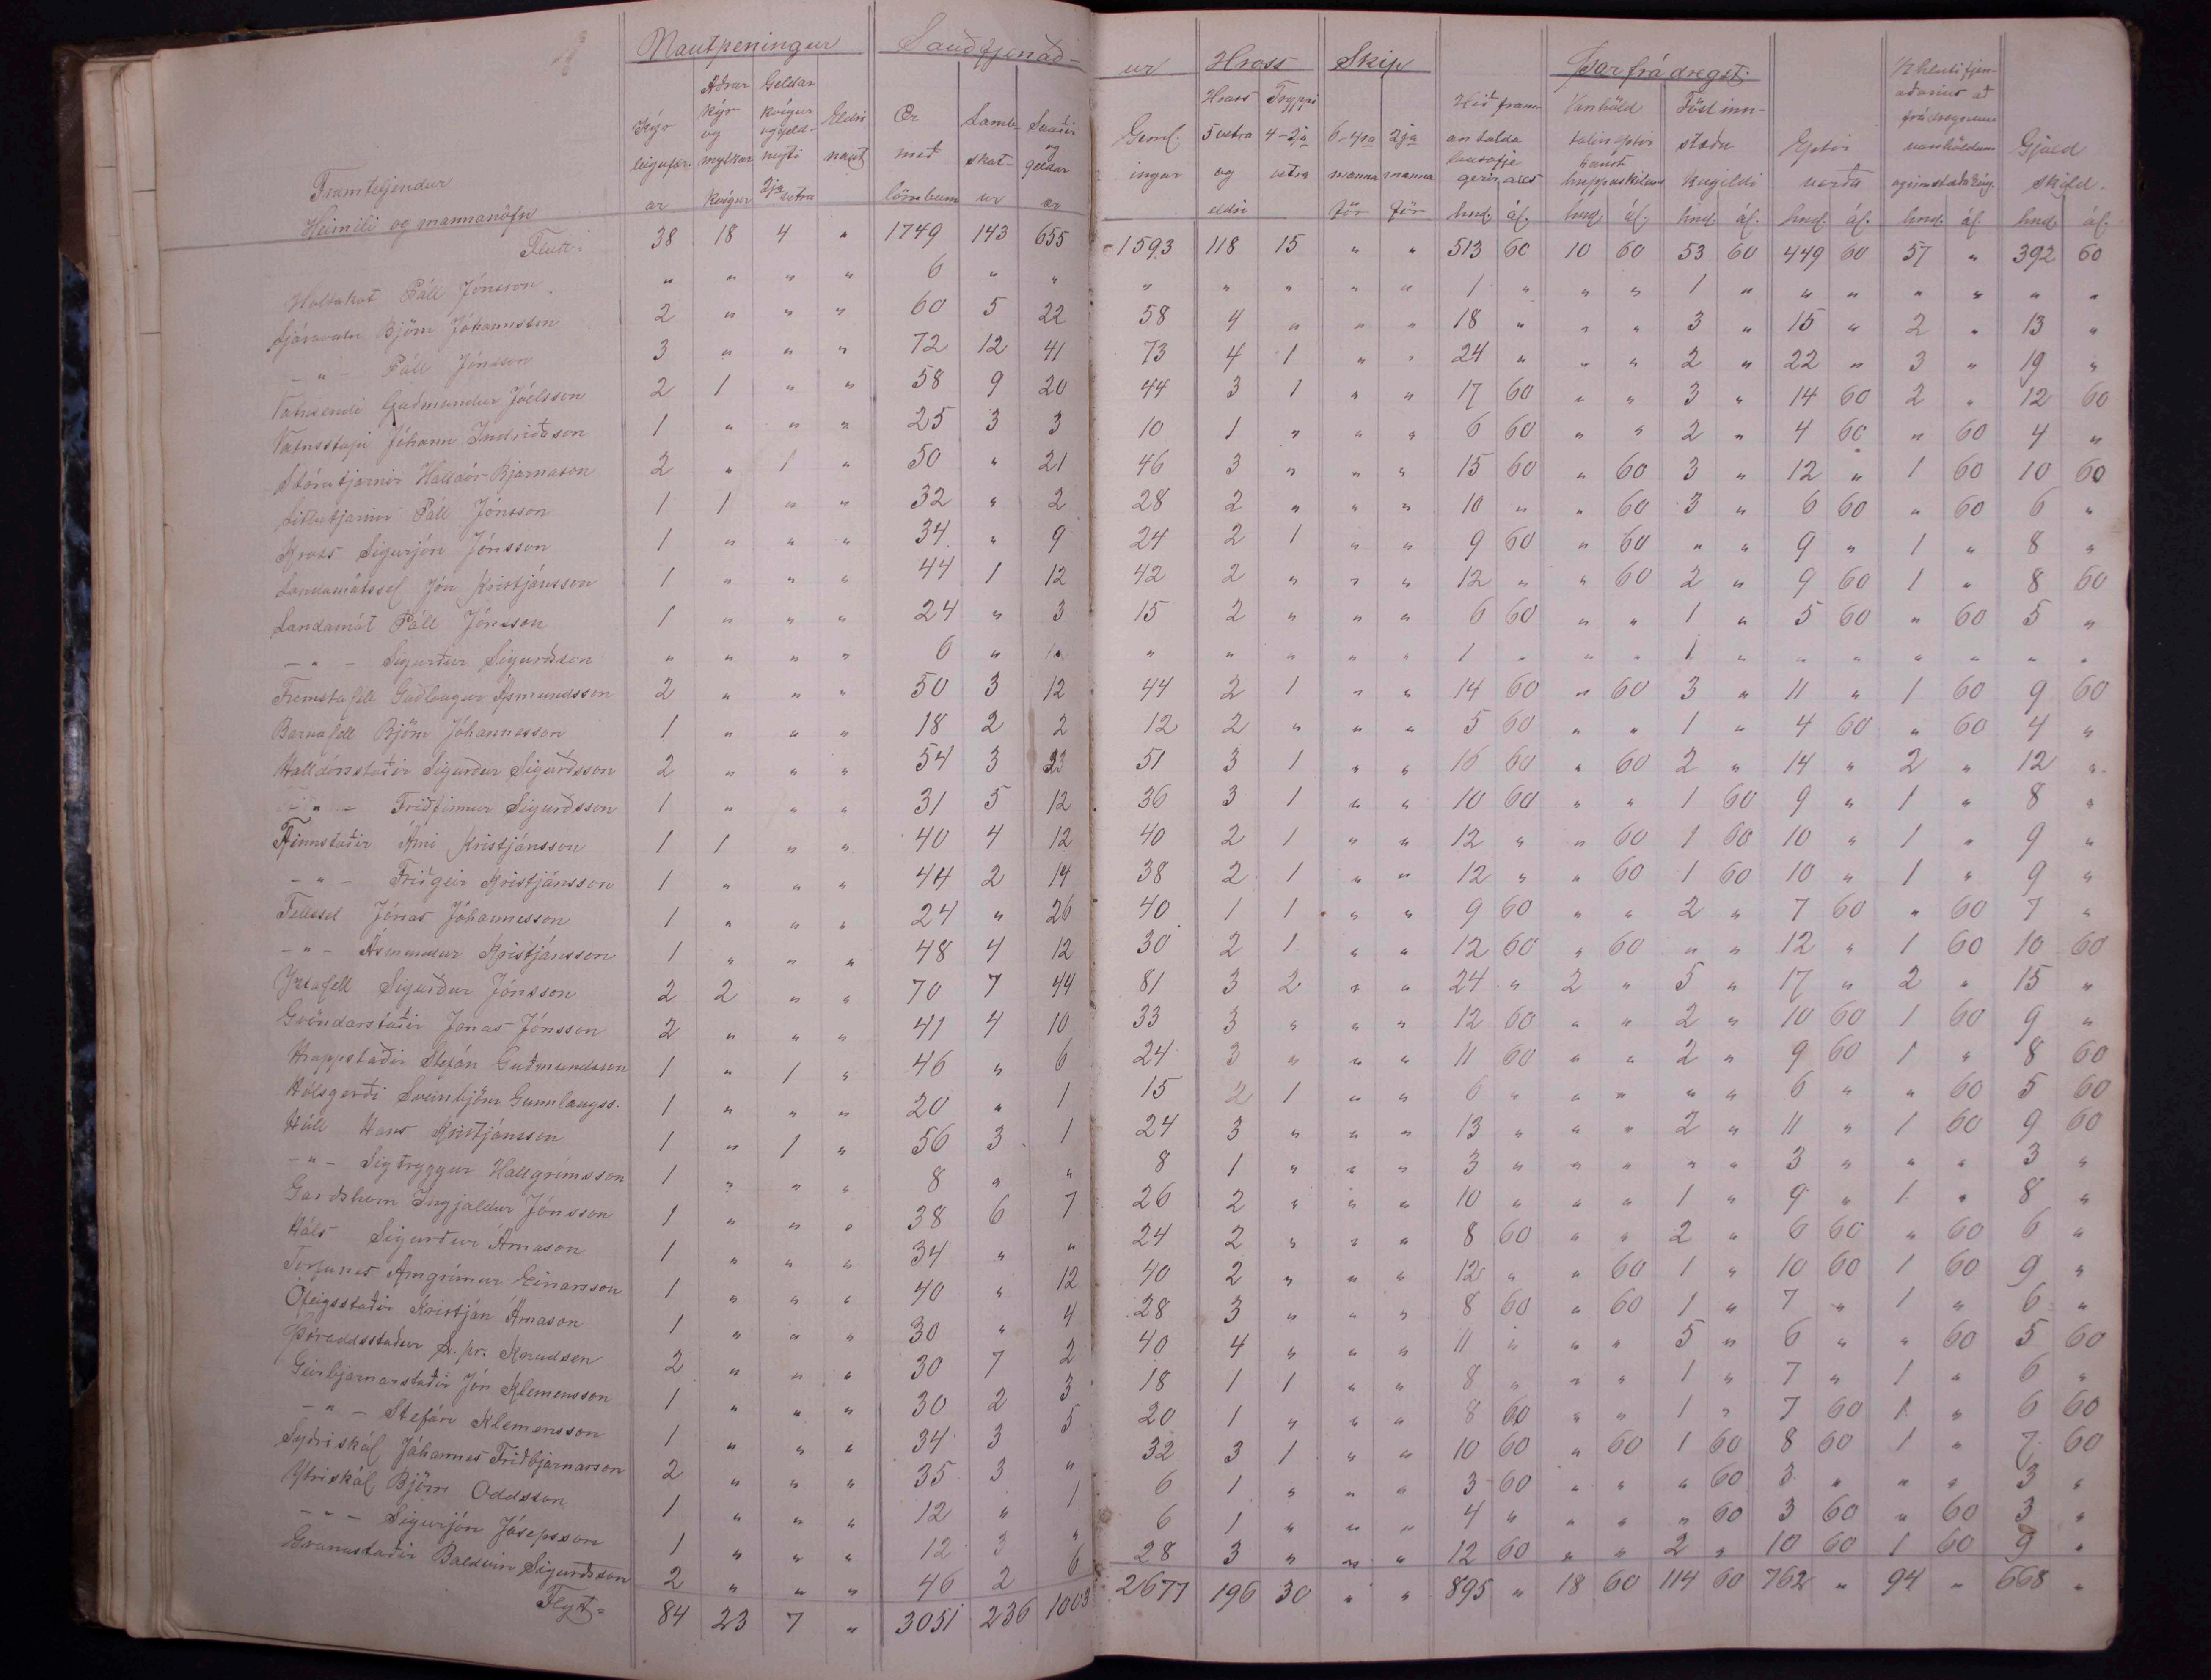 Nautpeningur Sauðfjenað- ur Hross Skip Þar frá dregst:
Framteljendur
Heimili og mannanöfn
Kýr leigufær. ar | Aðrar kýr og mylkar kvígur | Geldar kvígur og geld- neyti 2ja vetra | Eldri naut | Ær með lömbum | Lamb- skot- ur | Sauðir og geldar ær | Geml. ingar | Hross 5 vetra og eldri | Tryppi 4-2ja vetra | 6-4ra manna för | 2ja manna för | Hið fram antalda lausafje gerir hnd. ál. | Vanhöld talin eptir hnd. ál. | Föst inn- stæðu kúgildi hnd. ál. | Eptir verða hnd. ál. | að frádregnum vanhöldum hnd. ál. | Gjald skyld. hnd. ál.
Flutt: 38 18 4 " 1749 143 655 1593 118 15 " " 513 60 10 60 53 60 449 60 57 " 392 60
Holtakot Páll Jónsson " " " " 6 " " " " " " " 1 " " " 1 " " " " " " "
Björn Jóhannsson 2 " " " 60 5 22 58 4 " " " 18 " " " 3 " 15 " 2 " 13 "
- " - Páll Jónsson 3 " " " 72 12 41 73 4 1 " " 24 " " " 2 " 22 " 3 " 19 "
Vatnsendi Guðmundur Jóelsson 2 1 " " 58 9 20 44 3 1 " " 17 60 " " 3 " 14 60 2 " 12 60
Jóhann Indriðason 1 " " " 25 3 3 10 1 " " " 6 60 " " 2 " 4 60 " 60 4 "
Stórutjarnir Halldór Bjarnason 2 " 1 " 50 " 21 46 3 " " " 15 60 " 60 3 " 12 " 1 60 10 60
Litlutjarnir Páll Jónsson 1 1 " " 32 " 2 28 2 " " " 10 " " 60 3 " 6 60 " 60 6 "
Kross Sigurjón Jónsson 1 " " " 34 " 9 24 2 1 " " 9 60 " 60 " " 9 " 1 " 8 "
Landamótssel Jón Kristjánsson 1 " " " 44 1 12 42 2 " " " 12 " " 60 2 " 9 60 1 " 8 60
Landamót Páll Jónsson 1 " " " 24 " 3 15 2 " " " 6 60 " " 1 " 5 60 " 60 5 "
- " - Sigurður Sigurðsson " " " " 6 " " " " " " " 1 " " " 1 " " " " " " "
Fremstafell Guðlaugur Ásmundsson 2 " " " 50 3 12 44 2 1 " " 14 60 " 60 3 " 11 " 1 60 9 60
Barnafell Björn Jóhannesson 1 " " " 18 2 2 12 2 " " " 5 60 " " 1 " 4 60 " 60 4 "
Halldórsstaðir Sigurður Sigurðsson 2 " " " 54 3 33 51 3 1 " " 16 60 " 60 2 " 14 " 2 " 12 "
- " - Friðfinnur Sigurðsson 1 " " " 31 5 12 36 3 1 " " 10 60 " " 1 60 9 " 1 " 8 "
Finnstaðir Árni Kristjánsson 1 1 " " 40 4 12 40 2 1 " " 12 " " 60 1 60 10 " 1 " 9 "
- " - Friðgeir Kristjánsson 1 " " " 44 2 14 38 2 1 " " 12 " " 60 1 60 10 " 1 " 9 "
Fellssel Jónas Jóhannesson 1 " " " 24 " 26 40 1 1 " " 9 60 " " 2 " 7 60 " 60 7 "
- " - Ásmundur Kristjánsson 1 " " " 48 4 12 30 2 1 " " 12 60 " 60 " " 12 " 1 60 10 60
Yztafell Sigurður Jónsson 2 2 " " 70 7 44 81 3 2 " " 24 " 2 " 5 " 17 " 2 " 15 "
Gvöndarstaðir Jónas Jónsson 2 " " " 41 4 10 33 3 " " " 12 60 " " 2 " 10 60 1 60 9 "
Hrappstaðir Stefán Guðmundsson 1 " 1 " 46 " 6 24 3 " " " 11 60 " " 2 " 9 60 1 " 8 60
Hólsgerði Sveinbjörn Gunnlaugss. 1 " " " 20 " 1 15 2 1 " " 6 " " " " " 6 " " 60 5 60
Hóll Hans Kristjánsson 1 " 1 " 56 3 1 24 3 " " " 13 " " " 2 " 11 " 1 60 9 60
- " - Sigtryggur Hallgrímsson 1 " " " 8 " " 8 1 " " " 3 " " " " " 3 " " " 3 "
Garðshorn Ingjaldur Jónsson 1 " " " 38 6 7 26 2 " " " 10 " " " 1 " 9 " 1 " 8 "
Háls Sigurður Árnason 1 " " " 34 " " 24 2 " " " 8 60 " " 2 " 6 60 " 60 6 "
Torfunes Arngrímur Einarsson 1 " " " 40 " 12 40 2 " " " 12 " " 60 1 " 10 60 1 60 9 "
Ófeigsstaðir Kristján Árnason 1 " " " 30 " 4 28 3 " " " 8 60 " 60 1 " 7 " 1 " 6 "
Þóroddsstaður S. pr. Knudsen 2 " " " 30 7 2 40 4 " " " 11 " " " 5 " 6 " " 60 5 60
Geirbjarnarstaðir Jón Klemensson 1 " " " 30 2 3 18 1 1 " " 8 " " " 1 " 7 " 1 " 6 "
- " - Stefán Klemensson 1 " " " 34 3 5 20 1 " " " 8 60 " " 1 " 7 60 1 " 6 60
Syðriskál Jóhannes Friðbjarnarson 2 " " " 35 3 " 32 3 1 " " 10 60 " 60 1 60 8 60 1 " 7 60
Ytriskál Björn Oddsson 1 " " " 12 " 1 6 1 " " " 3 60 " " " 60 3 " " " 3 "
- " - Sigurjón Jósepsson 1 " " " 12 3 " 6 1 " " " 4 " " " " 60 3 60 " 60 3 "
Granastaðir Baldvin Sigurðsson 2 " " " 46 2 6 28 3 " " " 12 60 " " 2 " 10 60 1 60 9 "
Flyt= 84 23 7 " 3051 236 1003 2677 196 30 " " 895 " 18 60 114 60 762 " 94 " 668 "